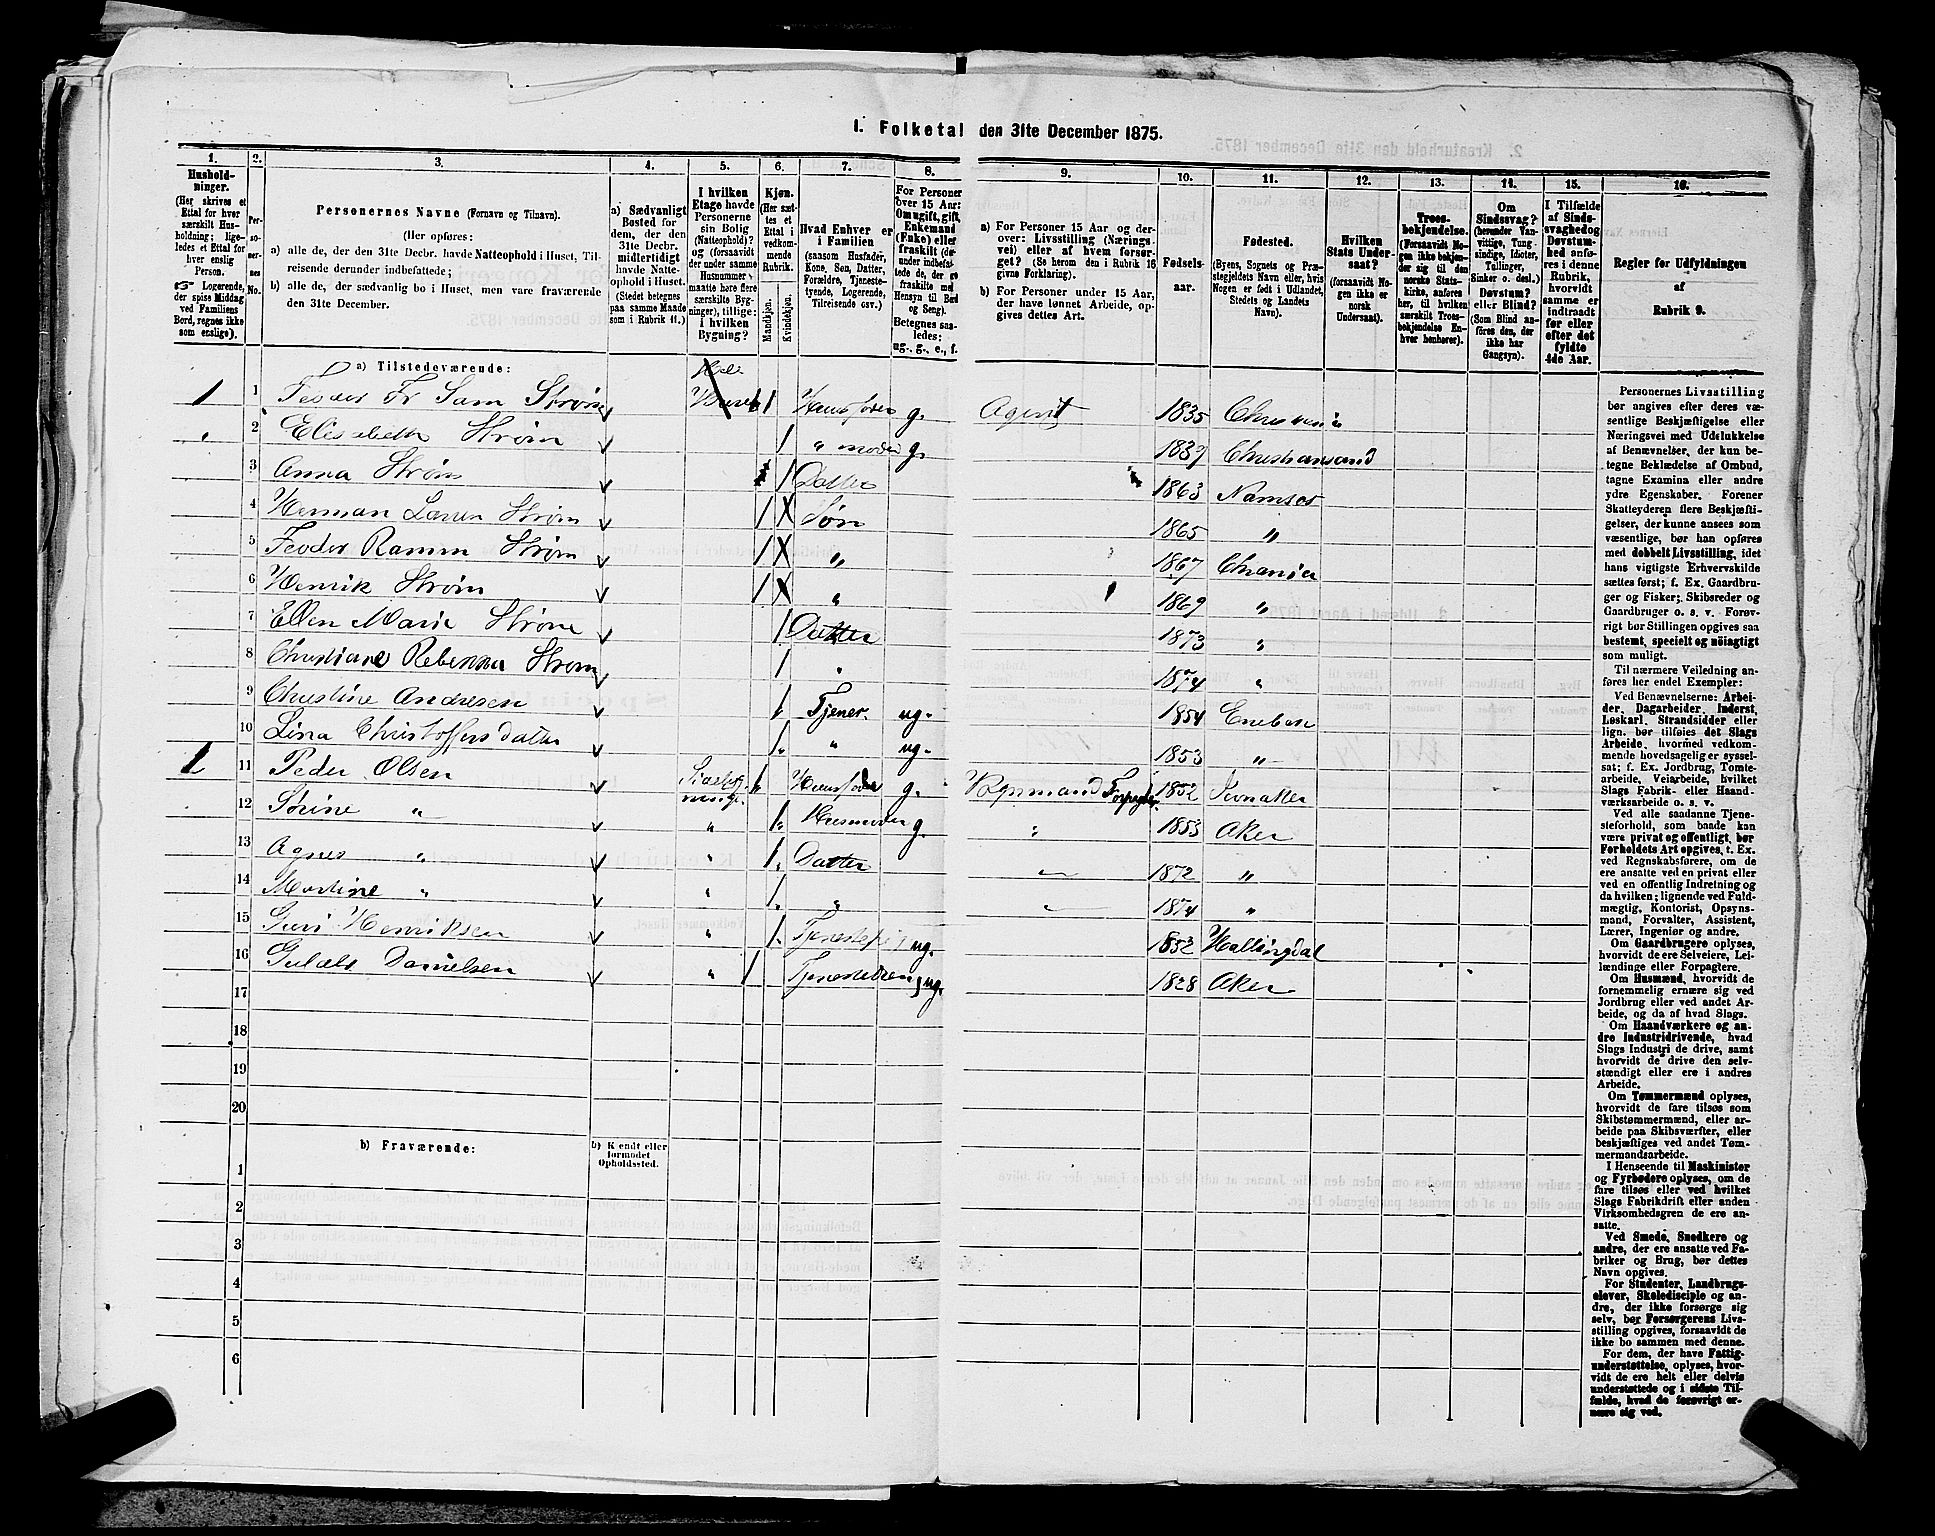 I. Folketal den 31te December 1875.
1. 2. 3. 4. 5. 6. 7. 8. 9. 10. 11. 12. 13. 14. 15. 16.
Husholdninger.
(Her skrives et
Ettal for hver
særskilt Husholdning; ligeledes
et Ettal for
hver enslig
Person.
Logerende,
der spise Middag
ved Familiens
Bord, regnes ikke
som enslige).
Personernes No.
Personernes Navne (Fornavn og Tilnavn).
(Her opføres:
a) alle de, der den 31te Decbr. havde Natteophold i Huset, Tilreisende
derunder indbefattede;
b) alle de, der sædvanlig bo i Huset, men vare fraværende
den 31te December.
a) Sædvanligt
Bosted for
dem, der den
31te Decbr.
midlertidigt
havde Natteophold
i Huset.
(Stedet betegnes
paa samme Maade
som i Rubrik 11.)
I hvilken
Etage havde
Personerne
sin Bolig
(Natteophold)?
og (forsaavidt
der under samme
Husnummer
maatte høre flere
særskilte Bygninger),
tillige:
i hvilken
Bygning?
Kjøn.
(Her sættes
et Ettal i
vedkommende
Rubrik.
Mandkjøn.
Kvindekjøn.
Hvad Enhver er
i Familien
(saasom Husfader,
Kone, Søn, Datter,
Forældre, Tjenestetyende,
Logerende,
Tilreisende osv.)
For Personer
over 15 Aar:
Om ugift, gift,
Enkemand
(Enke) eller
fraskilt
Betegnes saaledes:
ug., g., e., f.
a) For Personer 15 Aar og derover:
Livsstilling (Næringsvei)
eller af hvem forsørget?
(Se herom den i Rubrik 16
givne Forklaring).
b) For Personer under 15 Aar,
der have lønnet Arbeide, opgives
dettes Art.
Fødselsaar.
Fødested.
(Byens, Sognets og Præstegjeldets
Navn eller, hvis
Nogen er født i Udlandet,
Stedets og Landets
Navn).
Hvilken
Stats Undersaat?
(forsaavidt Nogen
ikke er
norsk
Undersaat).
Troesbekjendelse.
(Forsaavidt Nogen
ikke bekjender
sig til den
norske Statskirke,
anføres
her, til hvilken
særskilt Troesbekjendelse
Enhver
henhører).
Om
Sindssvag?
(herunder Vanvittige,
Tungsindige,
Idioter,
Tullinger,
Sinker o. desl.)
Døvstum?
eller Blind?
(Som Blind anføres
den, der
ikke har
Gangsyn).
I Tilfælde
af Sindssvaghed
og
Døvstumhed
anføres
i denne
Rubrik,
hvorvidt
samme er
indtraadt
før eller
efter det
fyldte
4de Aar.
Regler for Udfyldningen
af
Rubrik 9.
a) Tilstedeværende:
1 1 Feodor Fr Sam Strøm 1 Huusfader g. Agent 1835 Christiania
2 Elisabeth Strøm 1 " moder g. 1839 Christiansand
3 Anna Strøm 1 Datter 1863 Namsos
4 Herman Strøm 1 Søn 1865 "
5 Feodor Ramm Strøm 1 " 1867 Chrania
6 Henrik Strøm 1 " 1869 "
7 Ellen Marie Strøm 1 Datter 1873 "
8 Christiane Rebekka Strøm 1 " 1874 "
9 Christine Andresen 1 Tjener ug. 1854 Eneba
10 Lina Christoffersdatter 1 " ug. 1853 "
1 11 Peder Olsen 1 Huusfader g. Vognmand Forpagter 1852 Jevnaker
12 Sørine " " 1 Husmoder g. " 1853 Aker
13 Agnes " " 1 Datter " 1872 "
14 Martine " " 1 " " 1874 "
15 Guri Henriksen " 1 Tjenestepig ug. 1852 Hallingdal
16 Danielsen " 1 Tjenestedreng ug. 1828 Aker
17
18
19
20
b) Fraværende: b) Kendt eller
formodet
Opholdssted.
1
2
3
4
5
6
Personernes Livsstilling
bør angives efter deres væsentlige
Beskjæftigelse eller
Næringsvei med Udelukkelse
af Benævnelser, der kun betegne
Beklædelse af Ombud,
tagne Examina eller andre
ydre Egenskaber. Forener
Skatteyderen flere Beskjæftigelser,
der kunne ansees som
væsentlige, bør han opføres
med dobbelt Livsstilling, idet
hans vigtigste Erhvervskilde
sættes først; f. Ex. Gaardbruger
og Fisker; Skibsreder og
Gaardbruger o. s. v. Forøvrigt
bør Stillingen opgives saa
bestemt, specielt og nøiagtigt
som muligt.
Til nærmere Veiledning anføres
her endel Exempler:
Ved Benævnelserne: Arbeider,
Dagarbeider, Inderst,
Løskarl, Strandsidder eller
lign. bør tilføies det Slags
Arbeide, hvormed vedkommende
hovedsagelig er sysselsat;
f. Ex. Jordbrug, Tomtearbeide,
Veiarbeide, hvilket
Slags Fabrik- eller Haandværksarbeide
o. s. v.
Ved alle saadanne Tjenesteforhold,
som baade kan
være privat og offentligt, bør
Forholdets Art opgives, t. Ex.
ved Regnskabsførere, om de
ere ansatte ved en privat eller
ved en offentlig Indretning og
da hvilken; lignende ved Fuldmægtig,
Kontorist, Opsynsmand,
Forvalter, Assistent,
Lærer, Ingeniør og andre.
Om Gaardbrugere oplyses,
hvorvidt de ere Selveiere, Leilændinge
eller Forpagtere.
Om Husmænd, hvorvidt de
fornemmelig ernære sig ved
Jordbrug eller ved andet Arbeide,
og da af hvad Slags.
Om Haandværkere og andre
Industridrivende, hvad
Slags Industri de drive, samt
hvorvidt de drive den selvstændigt
eller ere i andres
Arbeide.
Om Tømmermænd oplyses,
hvorvidt de fare tilsøs som
Skibstømmermænd, eller arbeide
paa Skibsværfter, eller
beskjæftiges ved andet Tømmermandsarbeide.
I Henseende til Maskinister
og Fyrbødere oplyses, om de
fare tilsøs eller ved hvilket
Slags Fabrikdrift eller anden
Virksomhedsgren de ere ansatte.
Ved Smede, Snedkere og
andre, der ere ansatte ved Fabriker
og Brug, bør dettes
Navn opgives.
For Studenter, Landbrugselever,
Skoledisciple og andre,
der ikke forsørge sig
selv, bør Forsørgerens Livsstilling
opgives, forsaavidt de
ikke bo sammen med denne.
For dem, der have Fattigunderstøttelse,
oplyses, hvorvidt
de ere helt eller delvis
understøttede og i sidste Tilfælde,
hvad de forøvrigt ernære
sig ved.